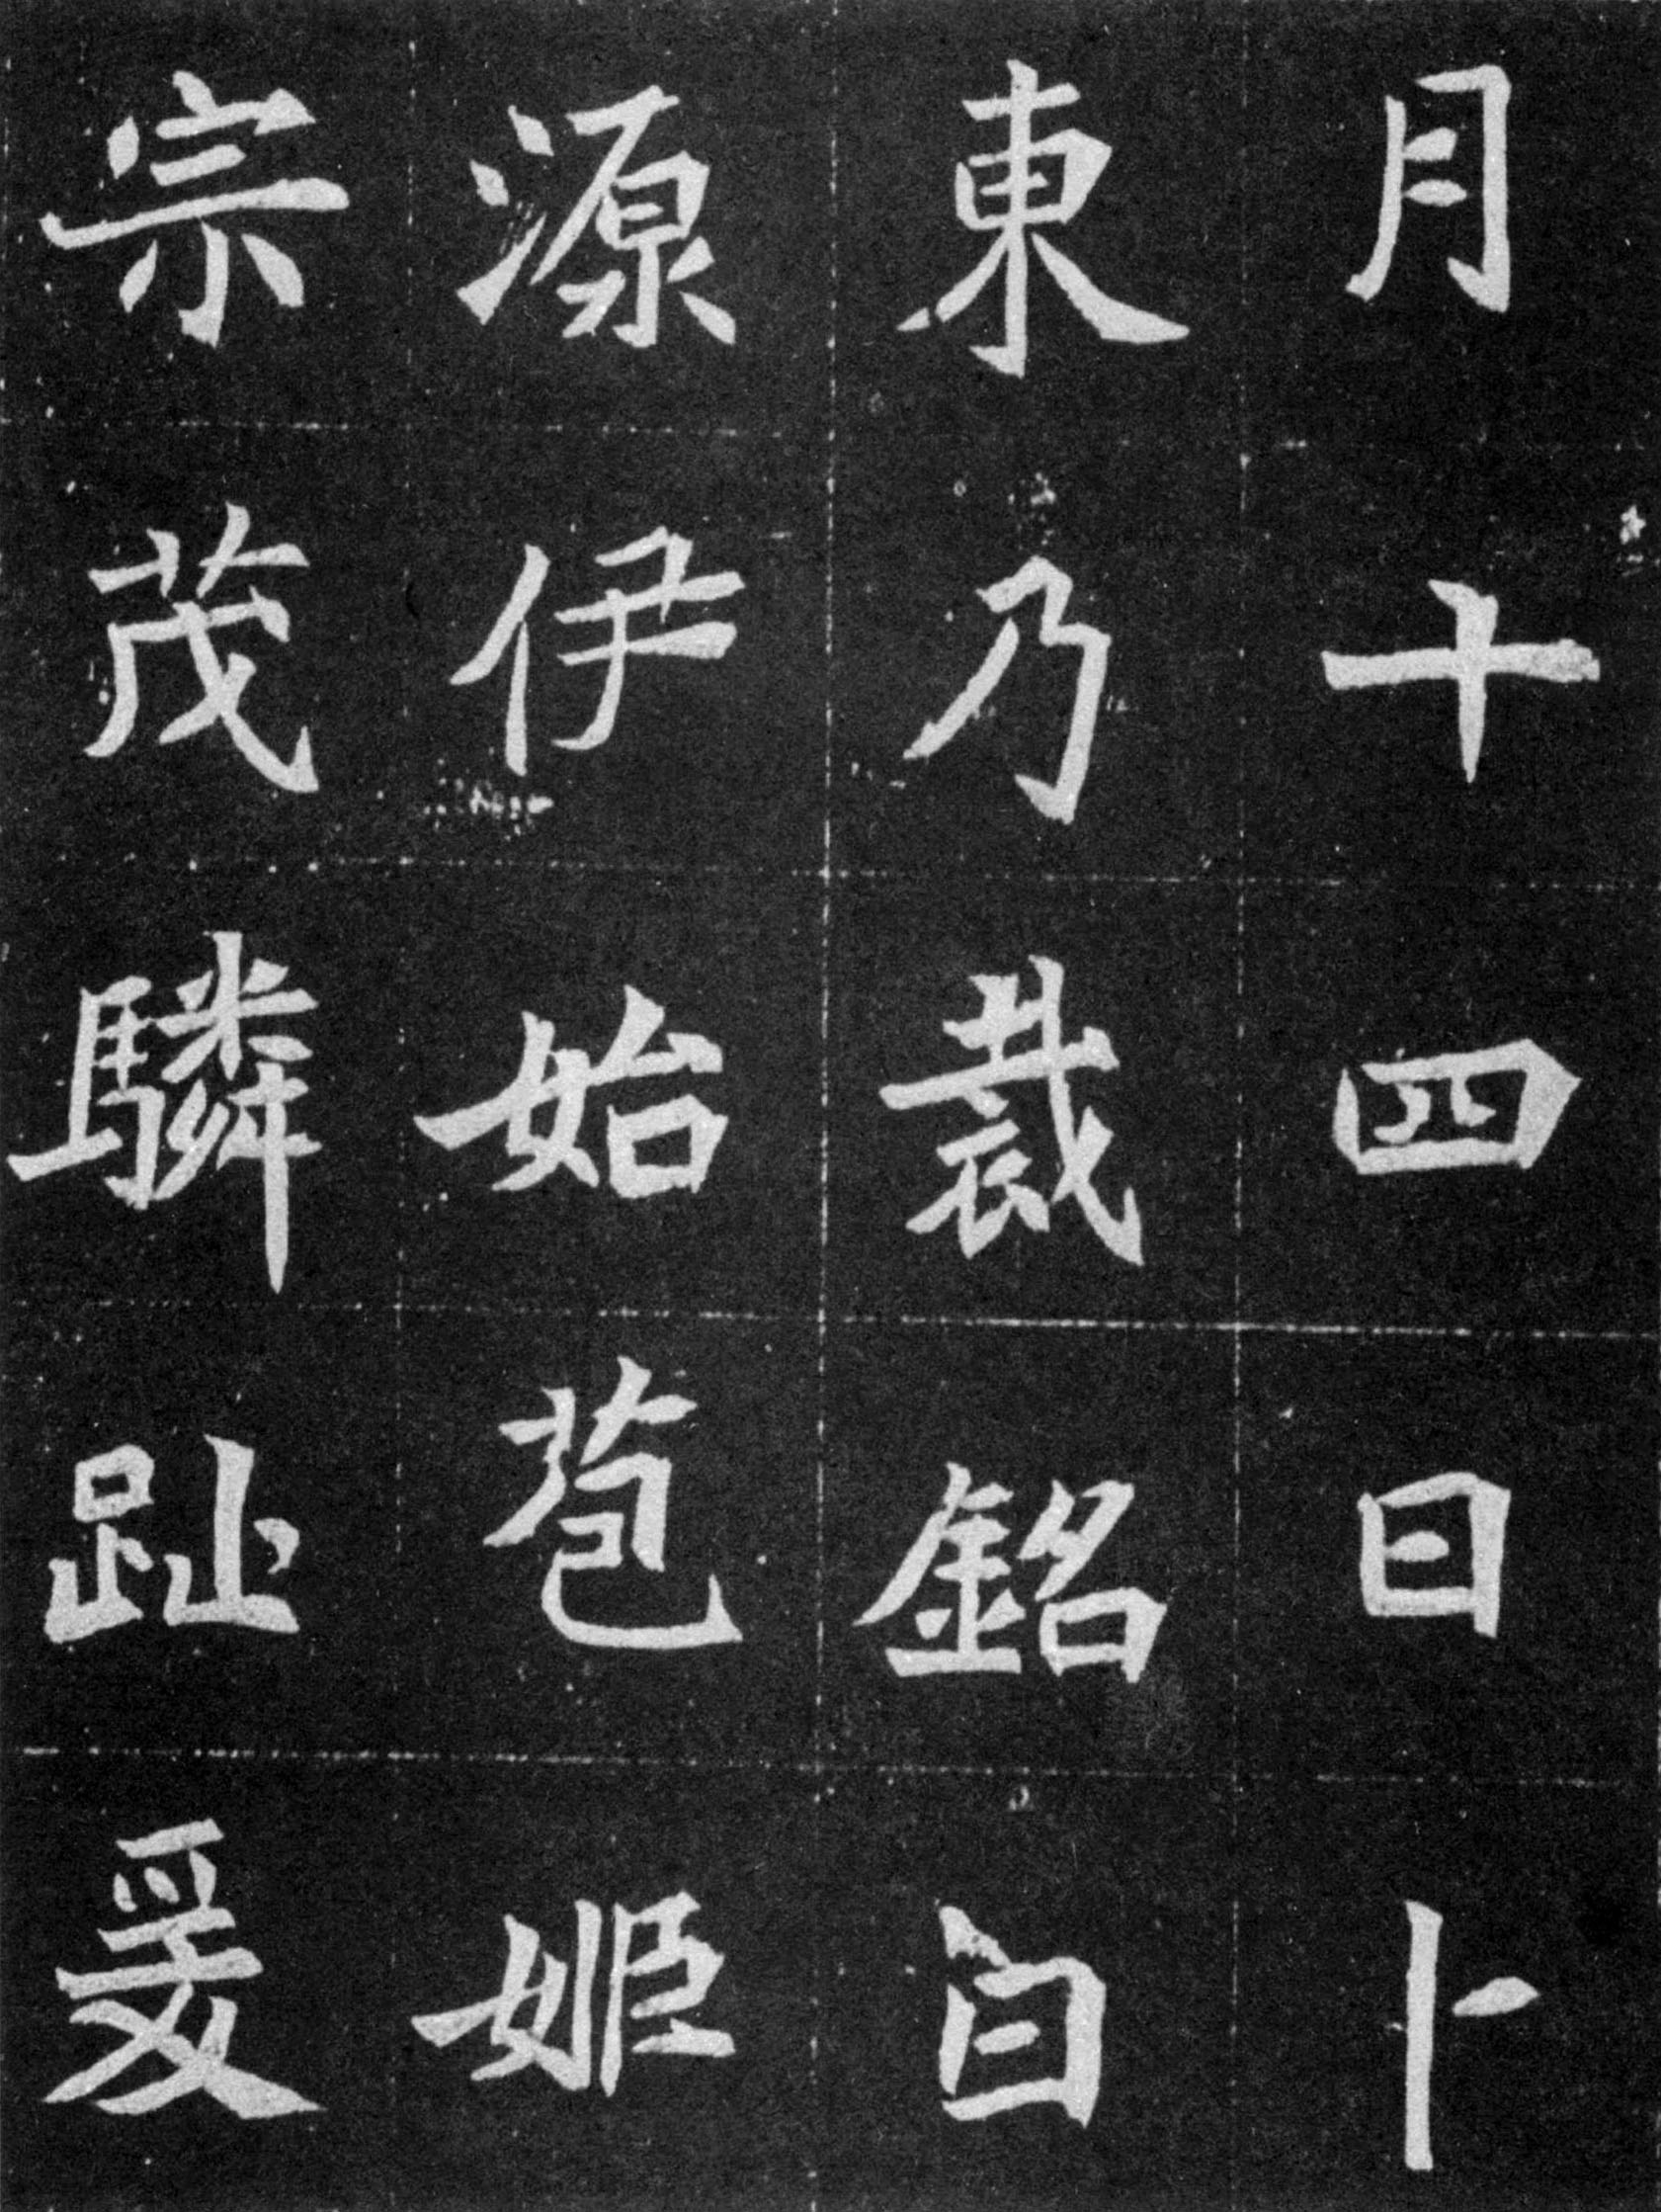 月十四日卜
東乃裁銘曰
源伊始苞姬
宗茂驎趾爰